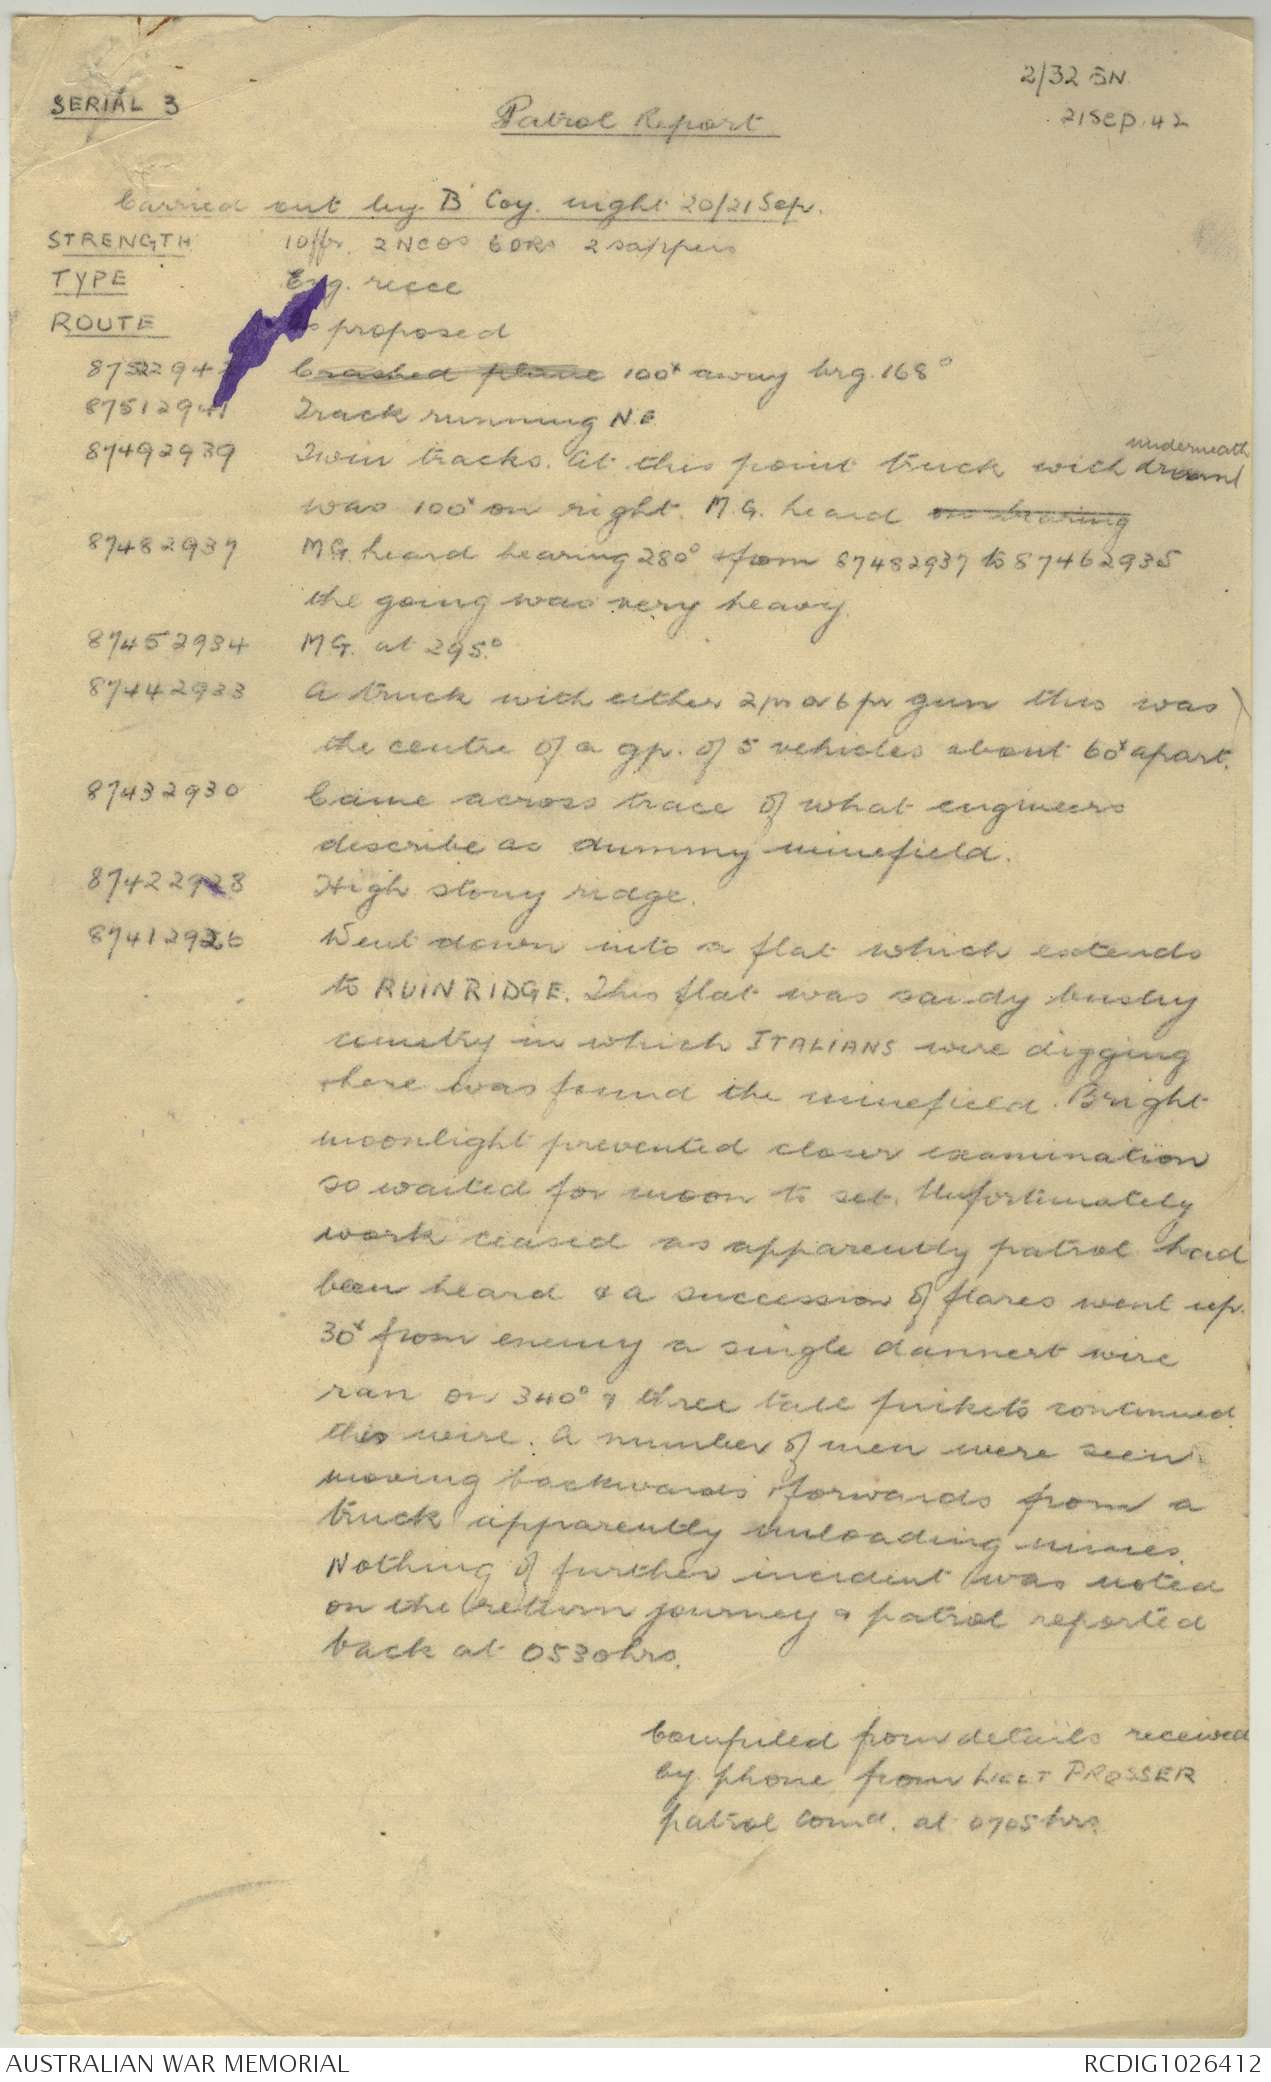 SERIAL 3
2/32 BN.
21 Sep. 42
Patrol Report
Carried out by B Coy. night 20/21 Sep.
STRENGTH 1 Offr. 2 NCOs 6 ORs 2 sappers
TYPE Eng. recce
ROUTE As proposed
8752294 Crashed plane 100x away brg. 168°
87512941 Track running N.E
underneath
87492939 Twin tracks. At this point truck with
was 100x on right. M.G. heard on bearing
87482937 MG heard bearing 280° & from 87482937 to 87462935
the going was very heavy.
87452934 MG. at 295.°
87442933 A truck with either 2 pr or 6 pr gun this was
the centre of a gp. of 5 vehicles about 60x apart.
87432930 Came across trace of what engineers
describe as dummy minefield.
87422928 High stony ridge.
87412926 Went down into a flat which extends
to RUIN RIDGE. This flat was sandy bushy
country in which ITALIANS were digging
here was found the minefield. Bright
moonlight prevented closer examination
so waited for moon to set. Unfortunately
work ceased as apparently patrol had
been heard & a succession of flares went up.
30x from enemy a single dannert wire
ran on 340° & three tall pickets continued
this wire. A number of men were seen
moving backwards & forwards from a
truck apparently unloading mines.
Nothing of further incident was noted
on the return journey & patrol reported
back at 0530hrs.
Compiled from details received
by phone from Lieut PROSSER
patrol comd. at 0705hrs.
AUSTRALIAN WAR MEMORIAL
RCDIG1026412